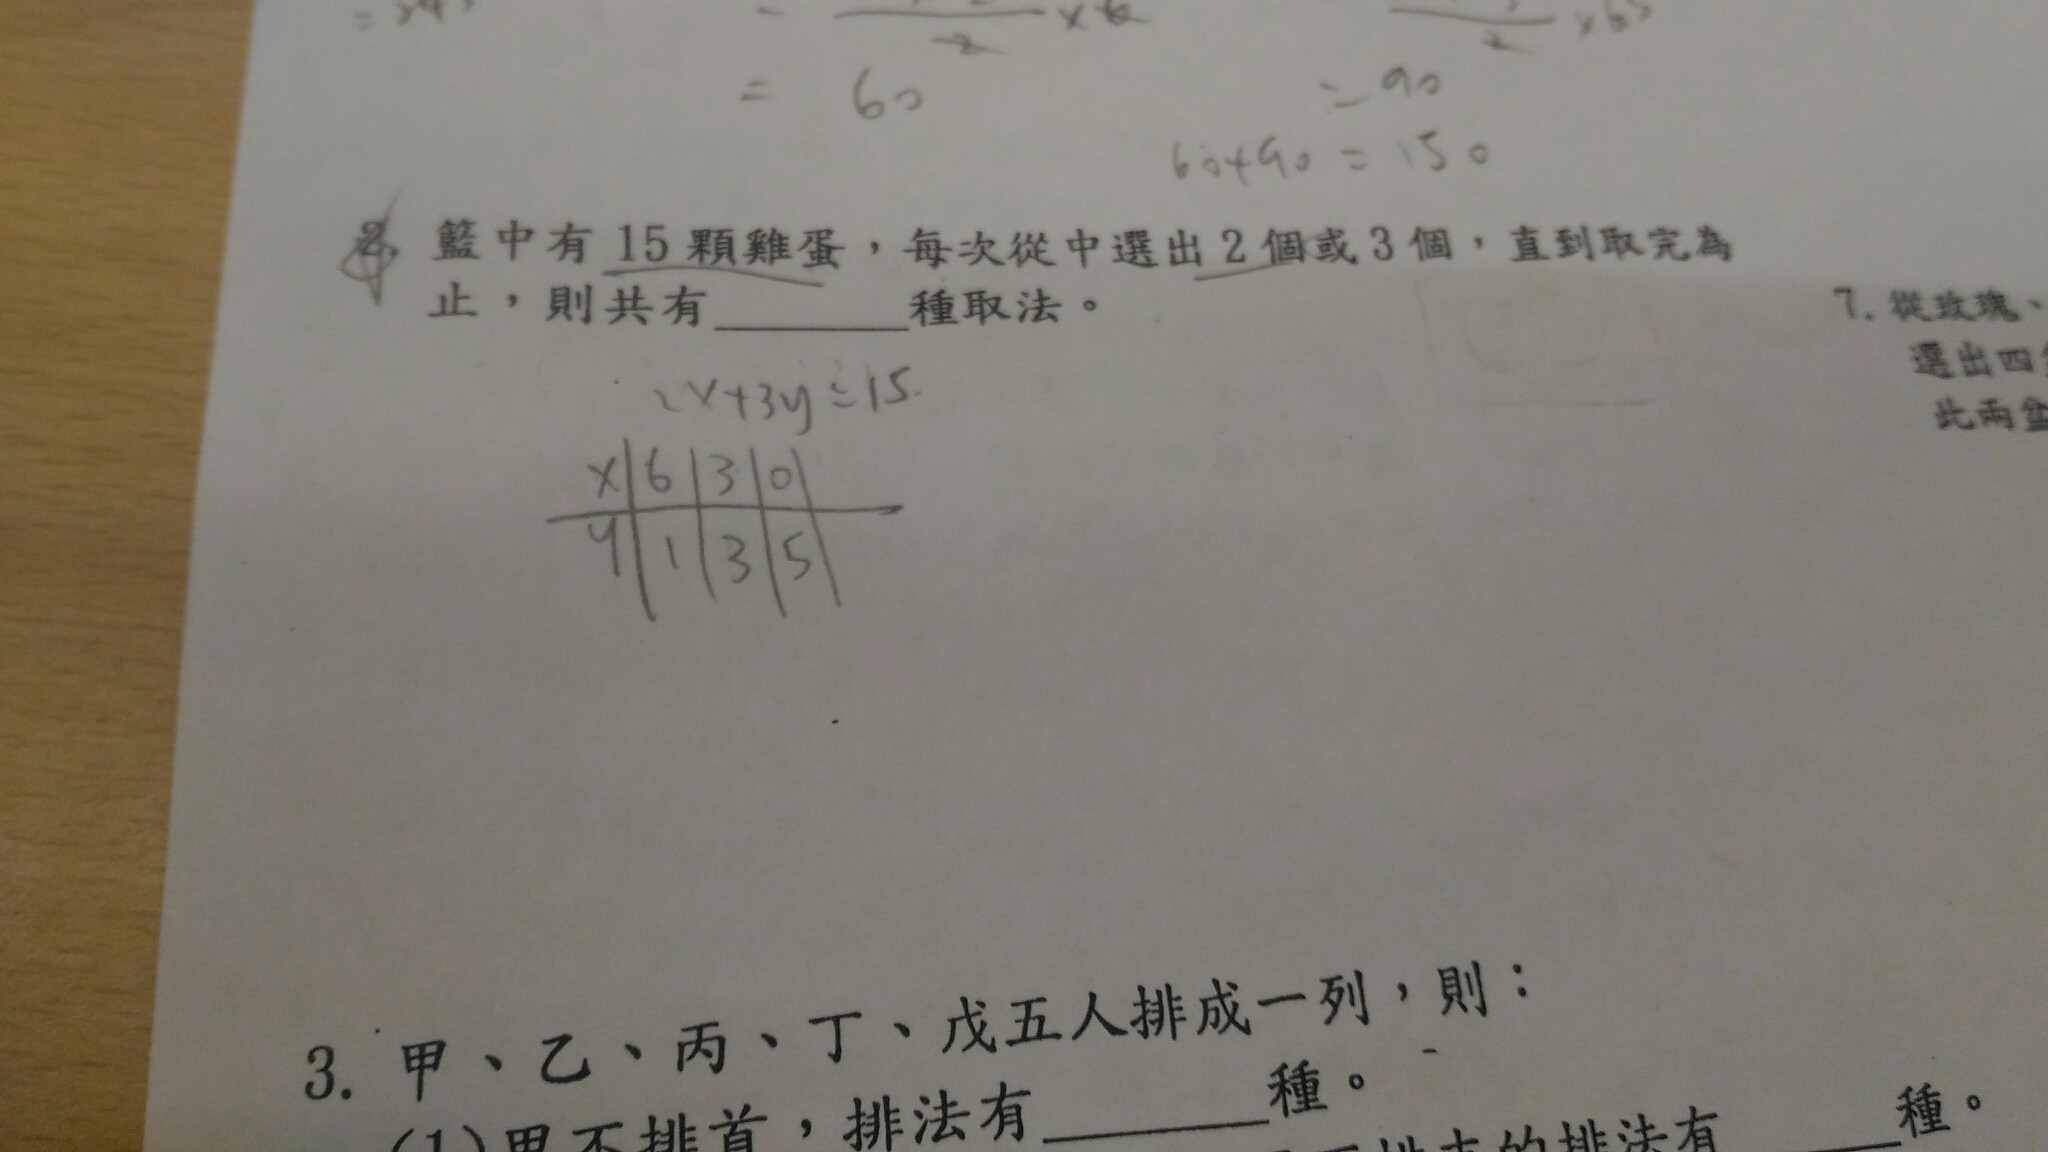 = 60
= 90
60+90 = 150
2. 籃中有 15 顆雞蛋，每次從中選出 2 個或 3 個，直到取完為
止，則共有______種取法。
2x+3y=15
x 6 3 0
y 1 3 5
7. 從玫瑰、
選出四
此兩盆
3. 甲、乙、丙、丁、戊五人排成一列，則：
(1)甲不排首，排法有______種。
排法有______種。